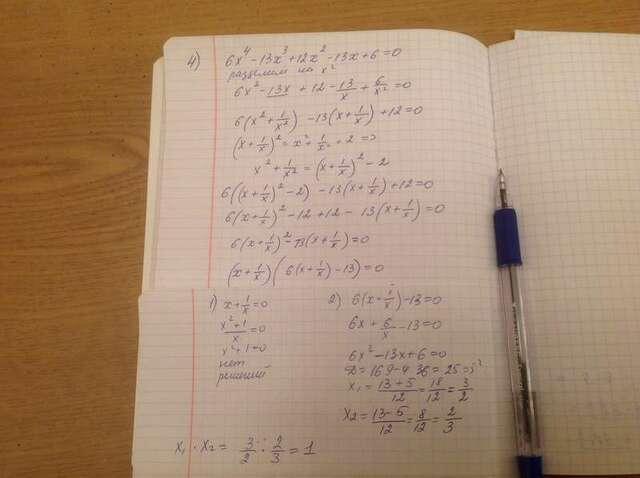 4) 6x⁴-13x³+12x²-13x+6=0
разделим на x²
6x²-13x+12-13/x+6/x²=0
6(x²+1/x²)-13(x+1/x)+12=0
(x+1/x)²=x²+1/x²+2 =>
x²+1/x²=(x+1/x)²-2
6((x+1/x)²-2)-13(x+1/x)+12=0
6(x+1/x)²-12+12-13(x+1/x)=0
6(x+1/x)²-13(x+1/x)=0
(x+1/x)(6(x+1/x)-13)=0
1) x+1/x=0
(x²+1)/x=0
x²+1=0
нет
решений
2) 6(x+1/x)-13=0
6x+6/x-13=0
6x²-13x+6=0
D=169-4·36=25=5²
x₁=(13+5)/12=18/12=3/2
x₂=(13-5)/12=8/12=2/3
x₁·x₂=3/2·2/3=1